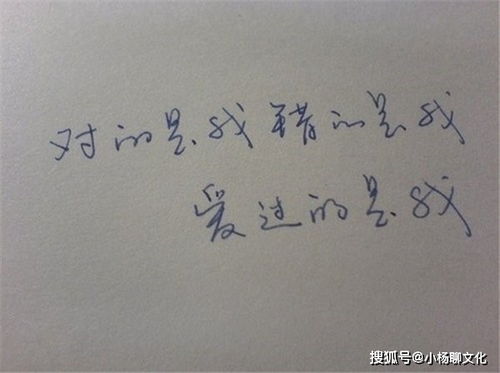 对的是我错的是我
爱过的是我
搜狐号@小杨聊文化